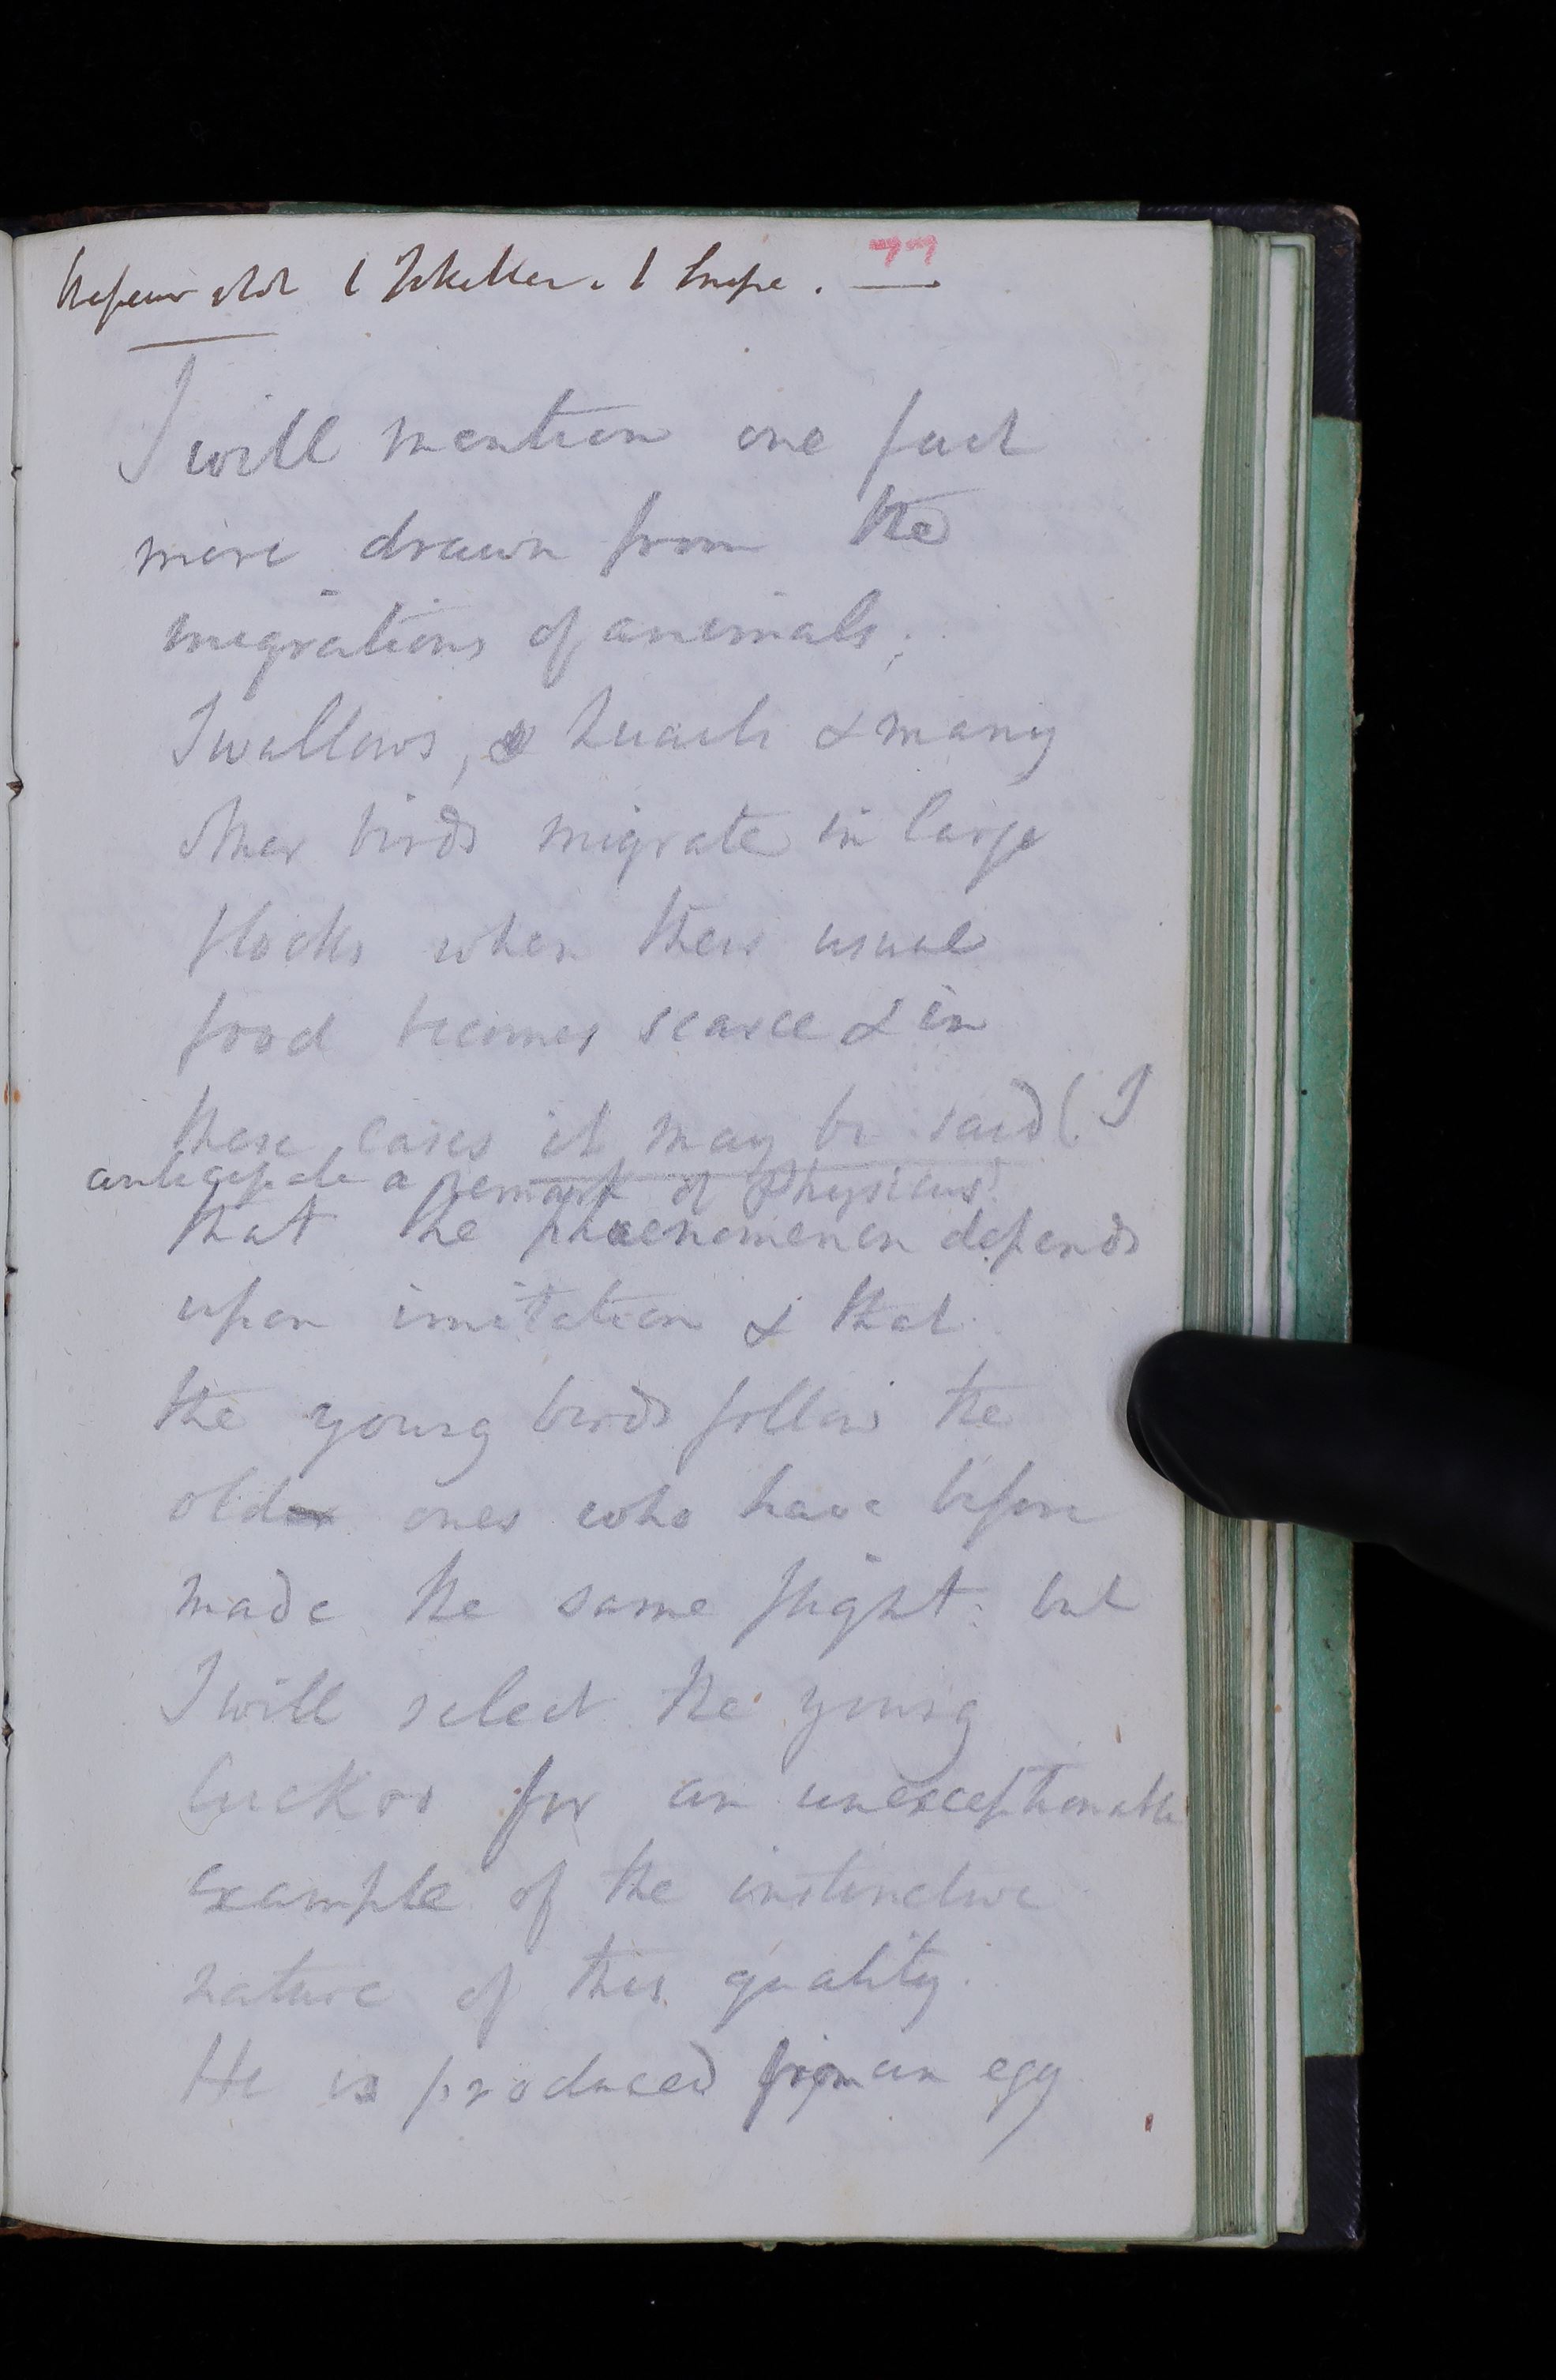 77
I will mention one fact
more drawn from the
migrations of animals.
Swallows, Quails & many
other birds migrate in large
flocks when their usual
food becomes scarce & in
these cases it may be said (I
anticipate a remark of Physicus)
that the phaenomenon depends
upon imitation & that
the young birds follow the
older ones who have before
made the same flight. but
I will select the young
Cuckoo for an unexceptionable
example of the instinctive
nature of this quality.
He is produced from an egg